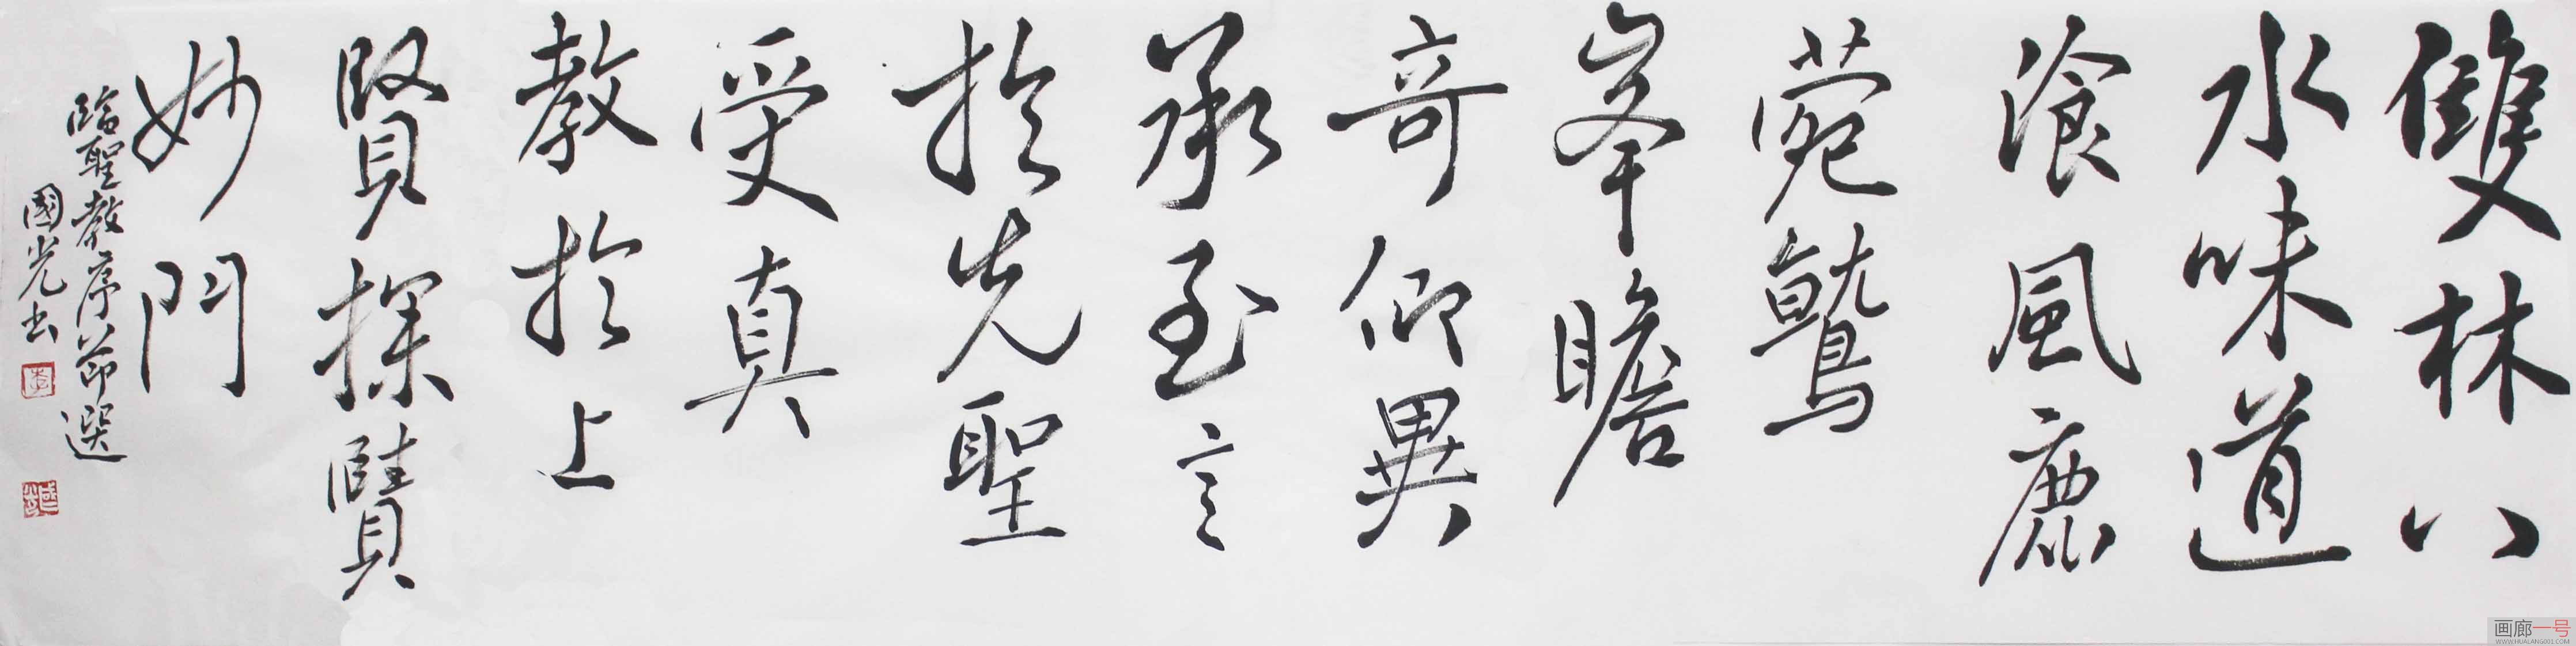 雙林八
水味道
飡風鹿
菀鷲
峯瞻
奇仰異
承至言
於先聖
受真
教於上
賢探賾
妙門
臨聖教序節選
國光書
画廊一号
WWW.HUALANG001.COM